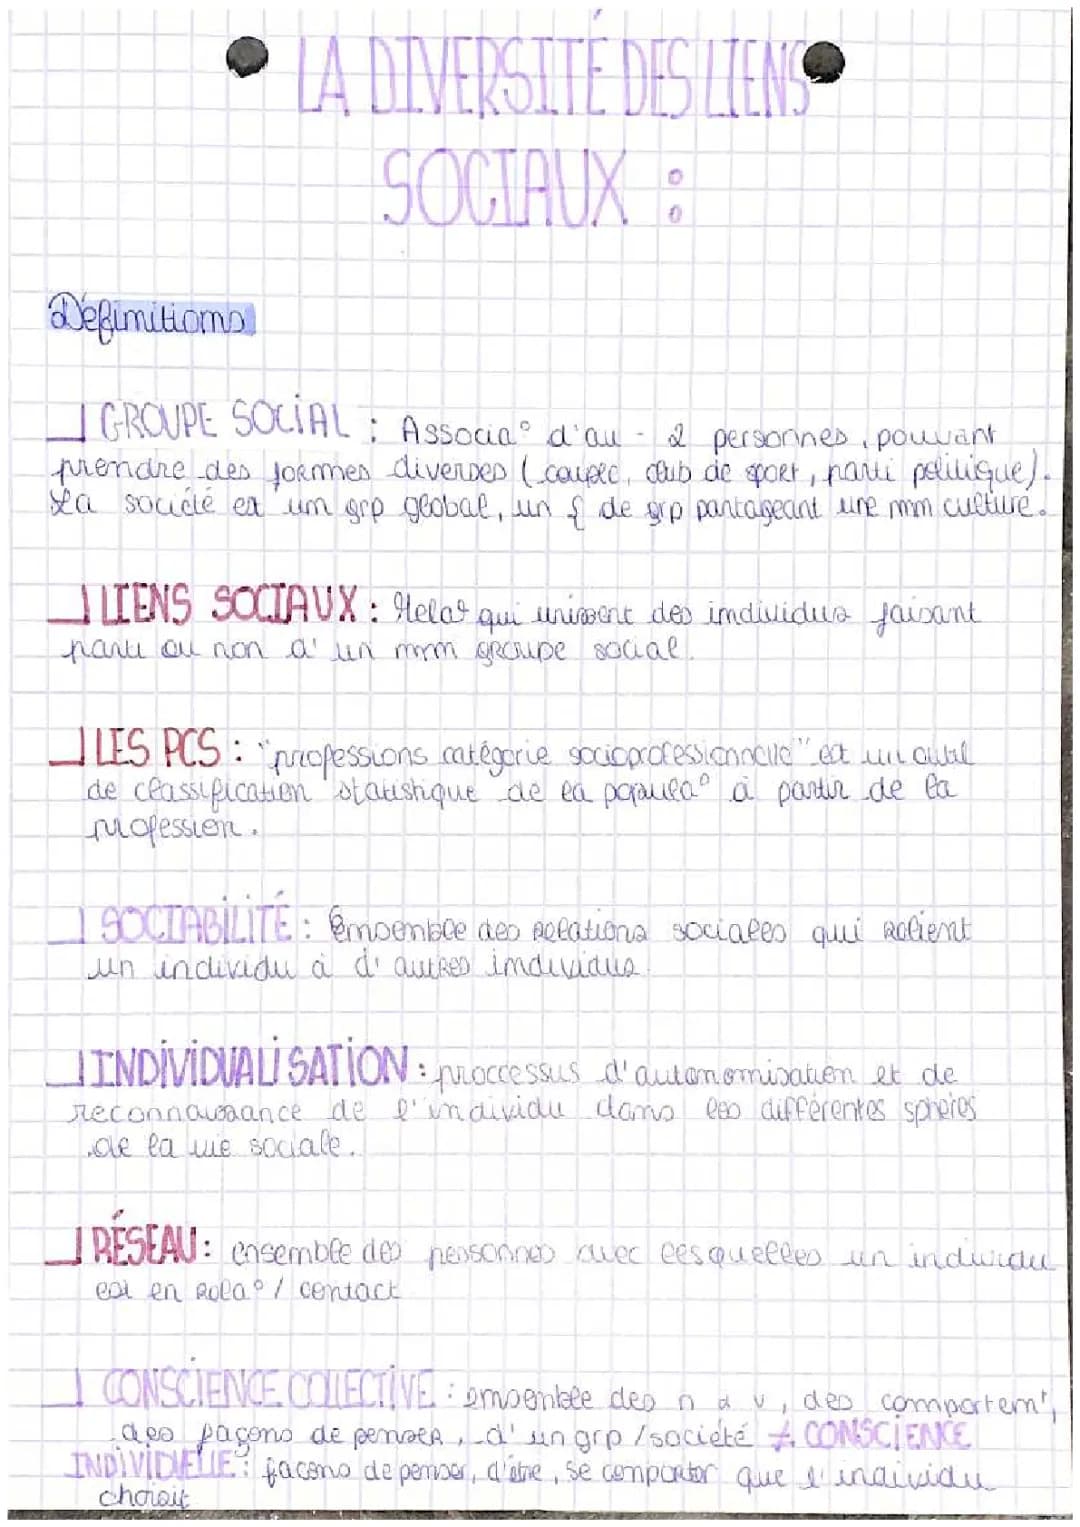 LA DIVERSITÉ DES LIENS
SOCIAUX :
Définitions
GROUPE SOCIAL : Associa° d'au - 2 personnes, pouvant
prendre des formes diverses (couple, club de sport, parti politique).
La société est un grp global, un f de grp partageant une mm culture.
LIENS SOCIAUX : Rela° qui unissent des individus faisant
parti ou non d'un mm groupe social.
LES PCS : "professions catégorie socioprofessionnelle" est un
de classification statistique de la popula° à partir de la
profession.
SOCIABILITÉ : Ensemble des relations sociales qui relient
un individu à d'autres individus.
INDIVIDUALISATION : proccessus d'autonomisation et de
reconnaissance de l'individu dans les différentes sphères
de la vie sociale.
RÉSEAU : ensemble des personnes avec lesquelles un individu
est en rela° / contact
CONSCIENCE COLLECTIVE : ensemble des n & v, des comportem',
des façons de penser, d'un grp / société ≠ CONSCIENCE
INDIVIDUELLE : facons de penser, d'être, se comporter que l'individu
choisit